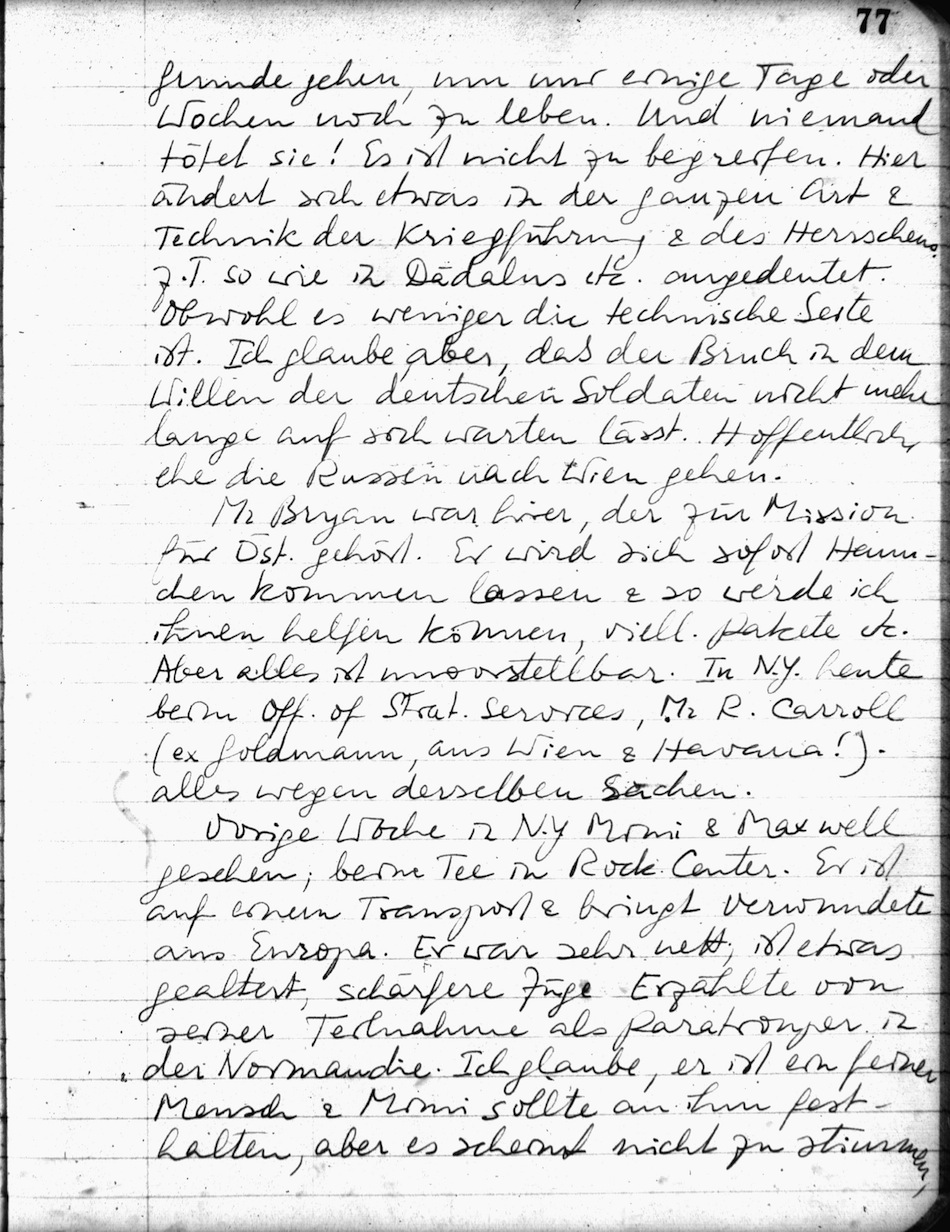 77
grunde gehen, um nur einige Tage oder
Wochen noch zu leben. Und niemand
tötet sie! Es ist nicht zu begreifen. Hier
ändert sich etwas in der ganzen Art &
Technik der Kriegführung & des Herrschens.
z.T. so wie in Dädalus etc. angedeutet.
Obwohl es weniger die technische Seite
ist. Ich glaube aber, das der Bruch in dem
Willen der deutschen Soldaten nicht mehr
lange auf sich warten lässt. Hoffentlich,
ehe die Russen nach Wien gehen.
Mr Bryan war hier, der zur Mission
für Öst. gehört. Er wird sich sofort Hann-
chen kommen lassen & so werde ich
ihnen helfen können, viell. Pakete etc.
Aber alles ist unvorstellbar. In N.Y. heute
beim Off. of Strat. Services, Mr R. Carroll
(ex Goldmann, aus Wien & Havana!).
alles wegen derselben Sachen.
Vorige Woche in N.Y Mimi & Maxwell
gesehen; beim Tee in Rock. Center. Er ist
auf einem Transport & bringt Verwundete
aus Europa. Er war sehr nett, ist etwas
gealtert, schärfere Züge Erzählte von
seiner Teilnahme als Paratrooper in
der Normandie. Ich glaube, er ist ein feiner
Mensch & Mimi sollte an ihm fest-
halten, aber es scheint nicht zu stimmen,